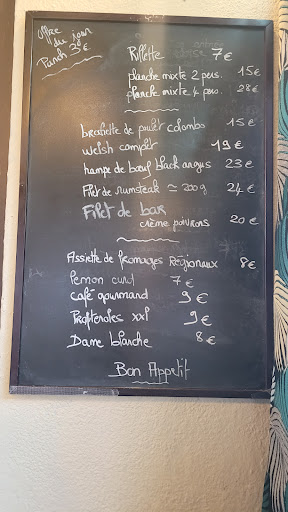 Offre
du jour
Punch 3€
Rillette 7€
planche mixte 2 pers. 15€
planche mixte 4 pers. 28€
brochette de poulet colombo 15€
welsh complet 19€
hampe de bœuf black angus 23€
Filet de rumsteak ≃ 200g 24€
Filet de bar
crème poivrons 20€
Assiette de fromages Régionaux 8€
Lemon curd 7€
café gourmand 9€
Profiteroles xxl 9€
Dame blanche 8€
Bon Appetit